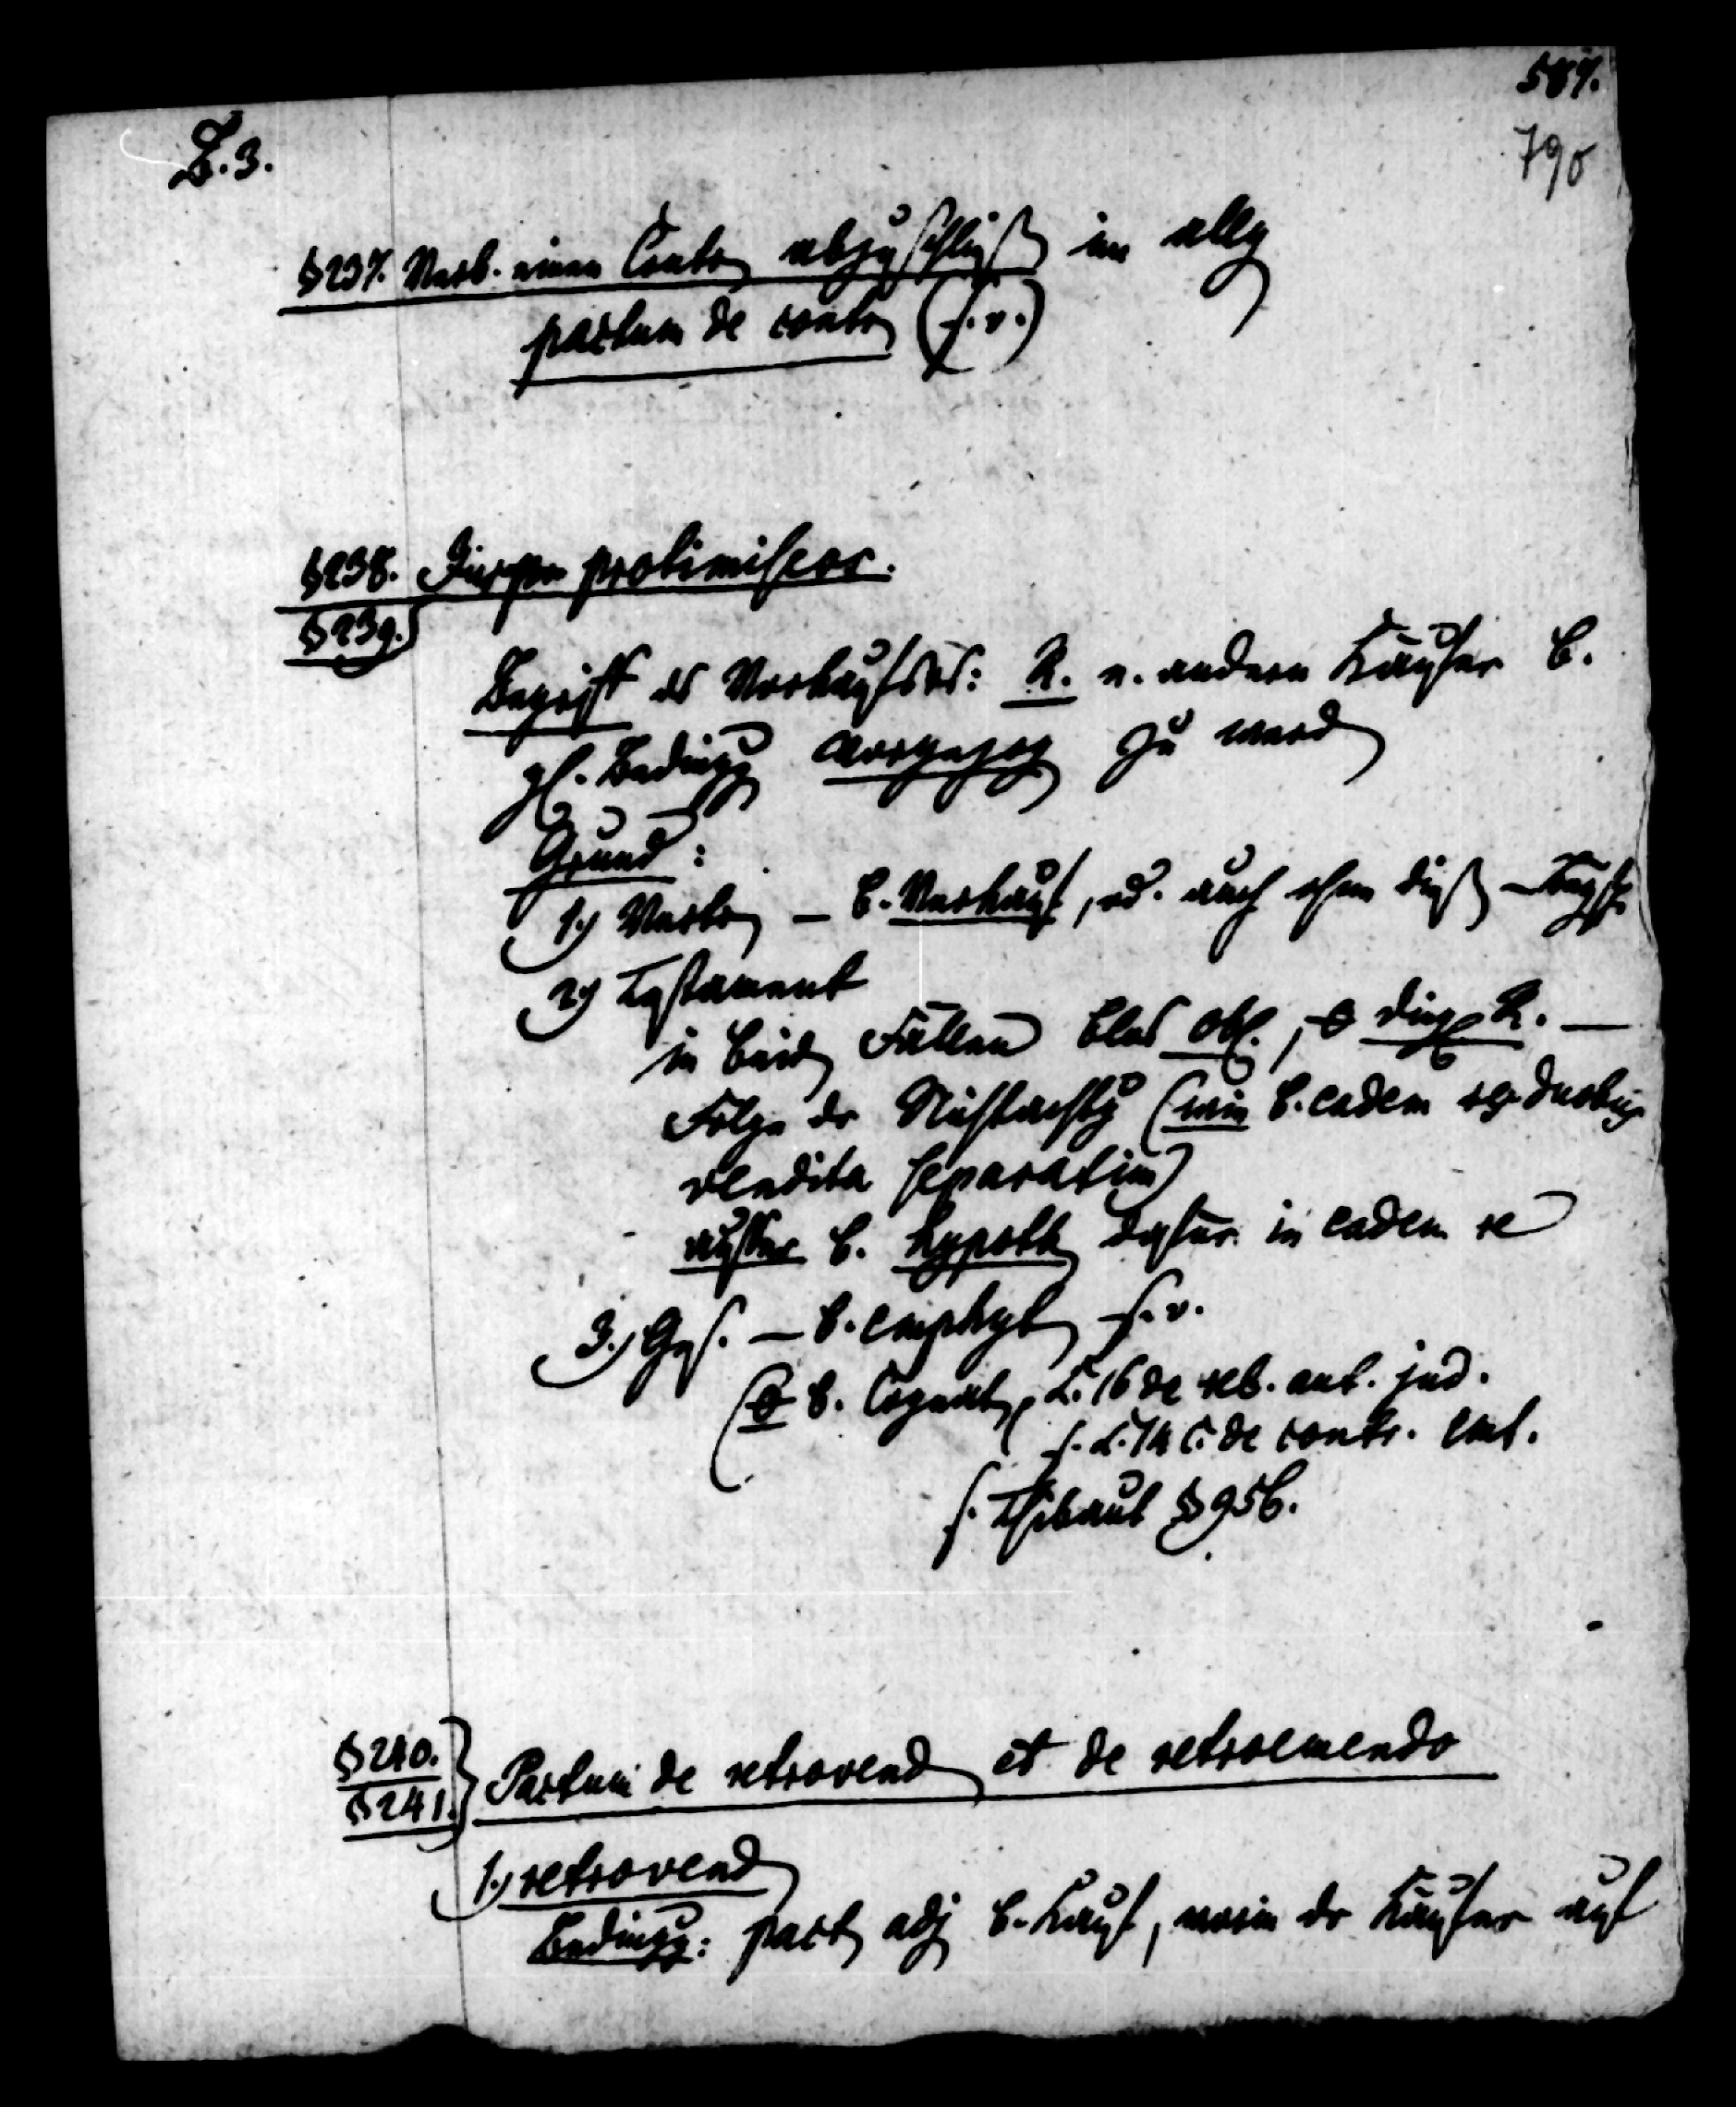 587.
790
Z. 3.
§ 237. Verb. einen Contr abzuschließ im allg
pactum de contr (s. v.)
§ 238. Jus protimiseos.
§ 239.
Begriff des Vorkaufsrs: R. v. andern Käufer b.
gl. Beding vorgezog zu werd
Grund:
1.) Vertr – b. Verkauf, od. auch ohne dieß
2.) Testament
in beid Fällen blos obl., ding R. –
Folge der (wie b. eadem re duobus
vendita separatim)
außer b. hypoth dafür in eadem re
3.) Ges. – b. emphyt s. v.
b. Cognat, L. 16 de reb. aut. jud.
s. L. 14 C. de contr. emt.
s. Thibaut § 956.
§ 240.
§ 241.
Pactum de retrovend et de retroemendo
1.) retrovend
Beding: pact adj b. Kauf, worin der Käufer auf